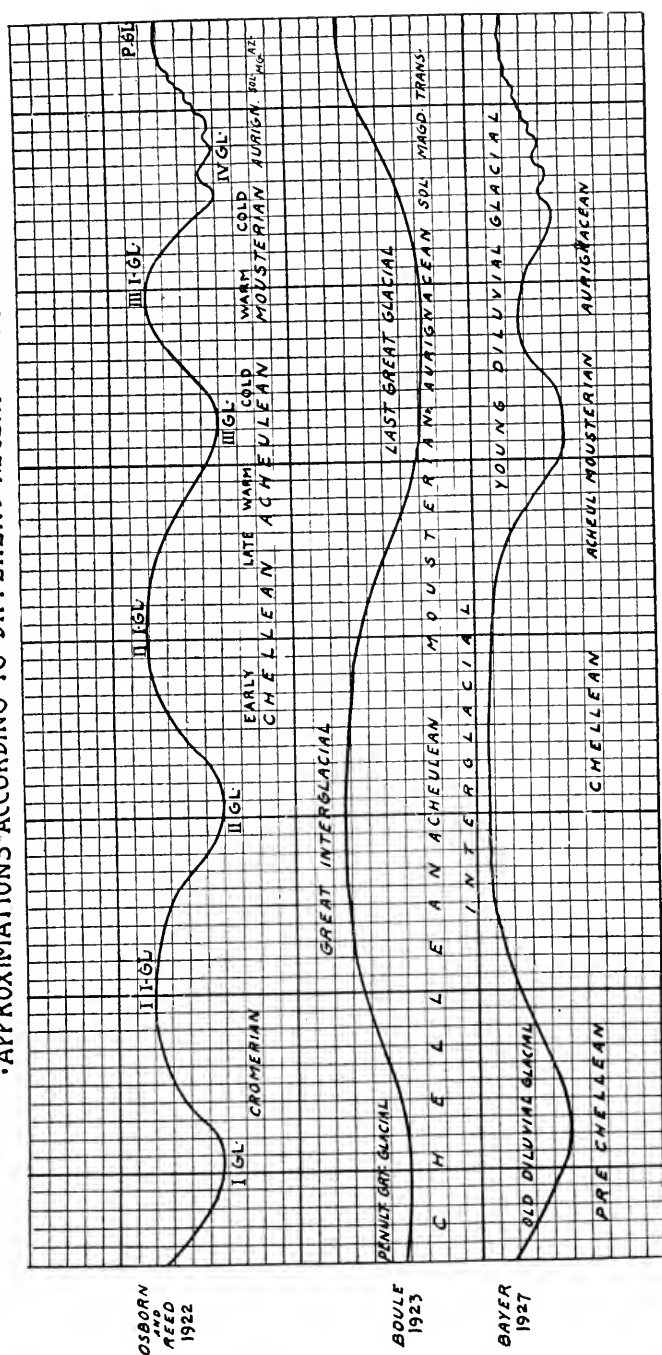 ·APPROXIMATIONS·ACCORDING TO DIFFERENT
OSBORN
AND
REED
1922
I GL·
I I-GL·
II GL·
II I-GL·
III GL·
III I-GL·
IV GL·
P. GL
CROMERIAN
EARLY LATE WARM COLD WARM COLD
CHELLEAN ACHEULEAN MOUSTERIAN AURIGN. SOL. MG. AZ.
BOULE
1923
PENULT. GRT. GLACIAL
GREAT INTERGLACIAL
LAST GREAT GLACIAL
CHELLEAN ACHEULEAN MOUSTERIAN AURIGNACEAN SOL· MAGD. TRANS·
BAYER
1927
OLD DILUVIAL GLACIAL
INTERGLACIAL
YOUNG DILUVIAL GLACIAL
PRE CHELLEAN CHELLEAN ACHEUL MOUSTERIAN AURIGNACEAN